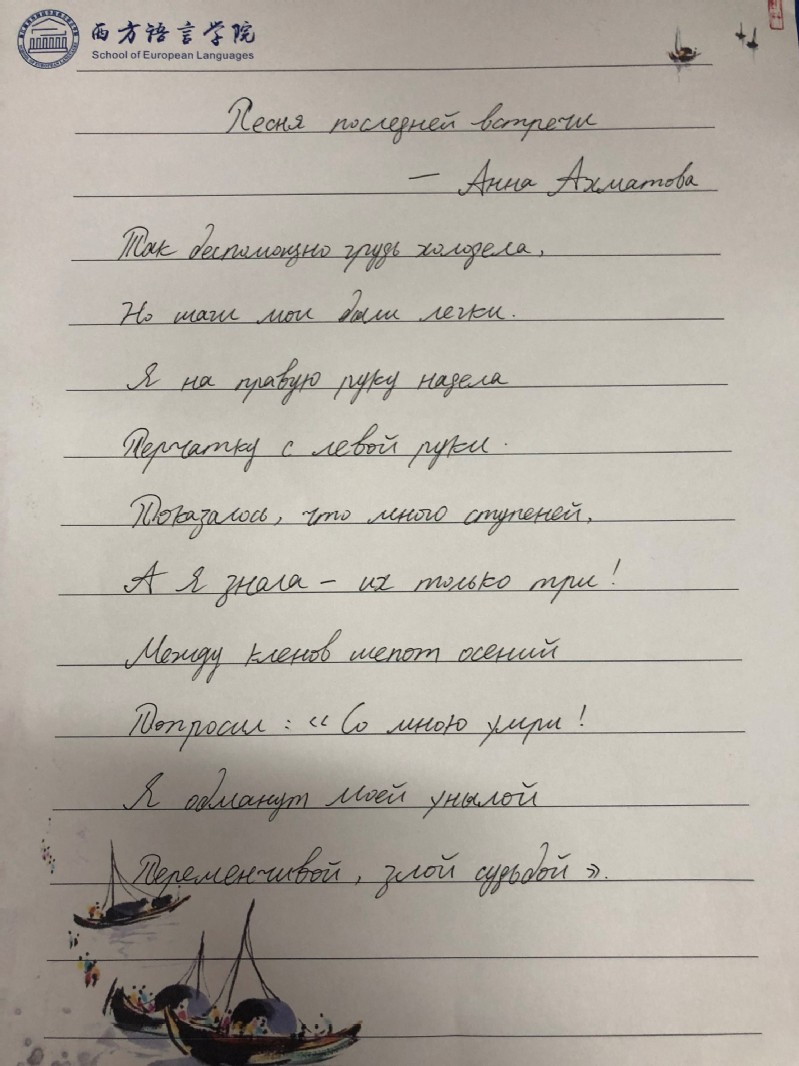 西方语言学院
School of European Languages
Песня последней встречи
— Анна Ахматова
Так беспомощно грудь холодела,
Но шаги мои были легки.
Я на правую руку надела
Перчатку с левой руки.
Показалось, что много ступеней,
А Я знала – их только три!
Между кленов шепот осений
Попросил : « Со мною умри!
Я обманут моей унылой
Переменчивой, злой судьбой ».